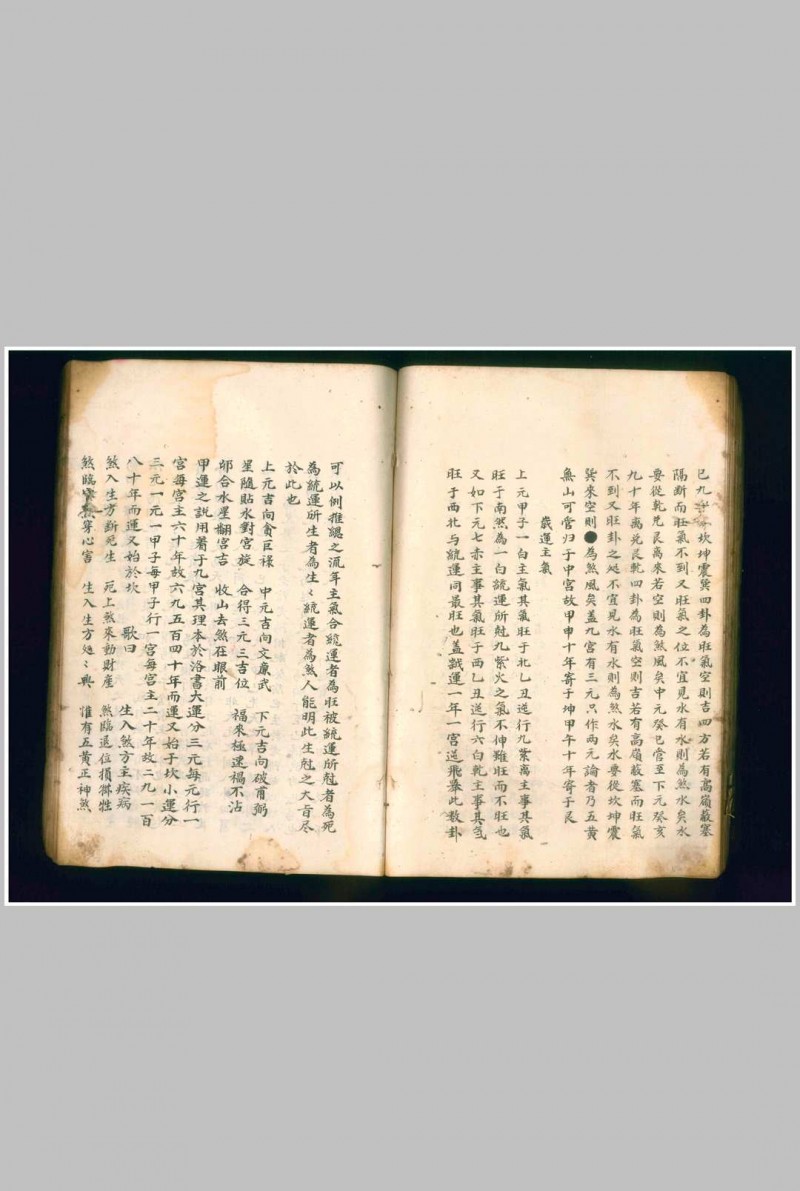 已九十年坎坤震巽四卦為旺氣空則吉四方若有高嶺蔽塞
陽斷而旺氣不到又旺氣之位不宜見水有水則為煞水矣水
要從乾兌艮离來若空則為煞風矣中元癸巳管至下元癸亥
九十年离兌艮乾四卦為旺氣空則吉若有高嶺蔽塞而旺氣
不到又旺卦之処不宜見水有水則為煞水矣水要從坎坤震
巽來空則●為煞風矣盖九宮有三元只作兩元論者乃五黄
無山可管归于中宮故甲申十年寄于坤甲午十年寄于艮
歲運主氣
上元甲子一白主氣其氣旺于北乙丑逆行九紫离主事其氣
旺于南然為一白統運所尅九紫火之氣不伸雖旺而不旺也
又如下元七赤主事其氣旺于西乙丑逆行六白乾主事其氣
旺于西北与統運同最旺也盖歲運一年一宮逆飛此数卦
可以例推總之流年主氣合統運者為旺被統運所尅者為死
為統運所生者為生〻統運者為煞人能明此生尅之大旨尽
於此也
上元吉向貪巨祿　中元吉向文廉武　下元吉向破甫弼
星隨貼水對宮旋　合得三元三吉位　福來極速禍不沾
却合水星翻宮吉　收山去煞在眼前
甲運之説用着于九宮其理本於洛書大運分三元每元行一
宮每宮主六十年故六九五百四十年而運又始于坎小運分
三元一元一甲子每甲子行一宮每宮主二十年故二九一百
八十年而運又始於坎　歌曰　生入煞方主疾病
煞入生方斷死生　死上煞來動財產　煞臨退位損犧牲
煞臨穿心害　生入生方処〻興　惟有五黄正神煞